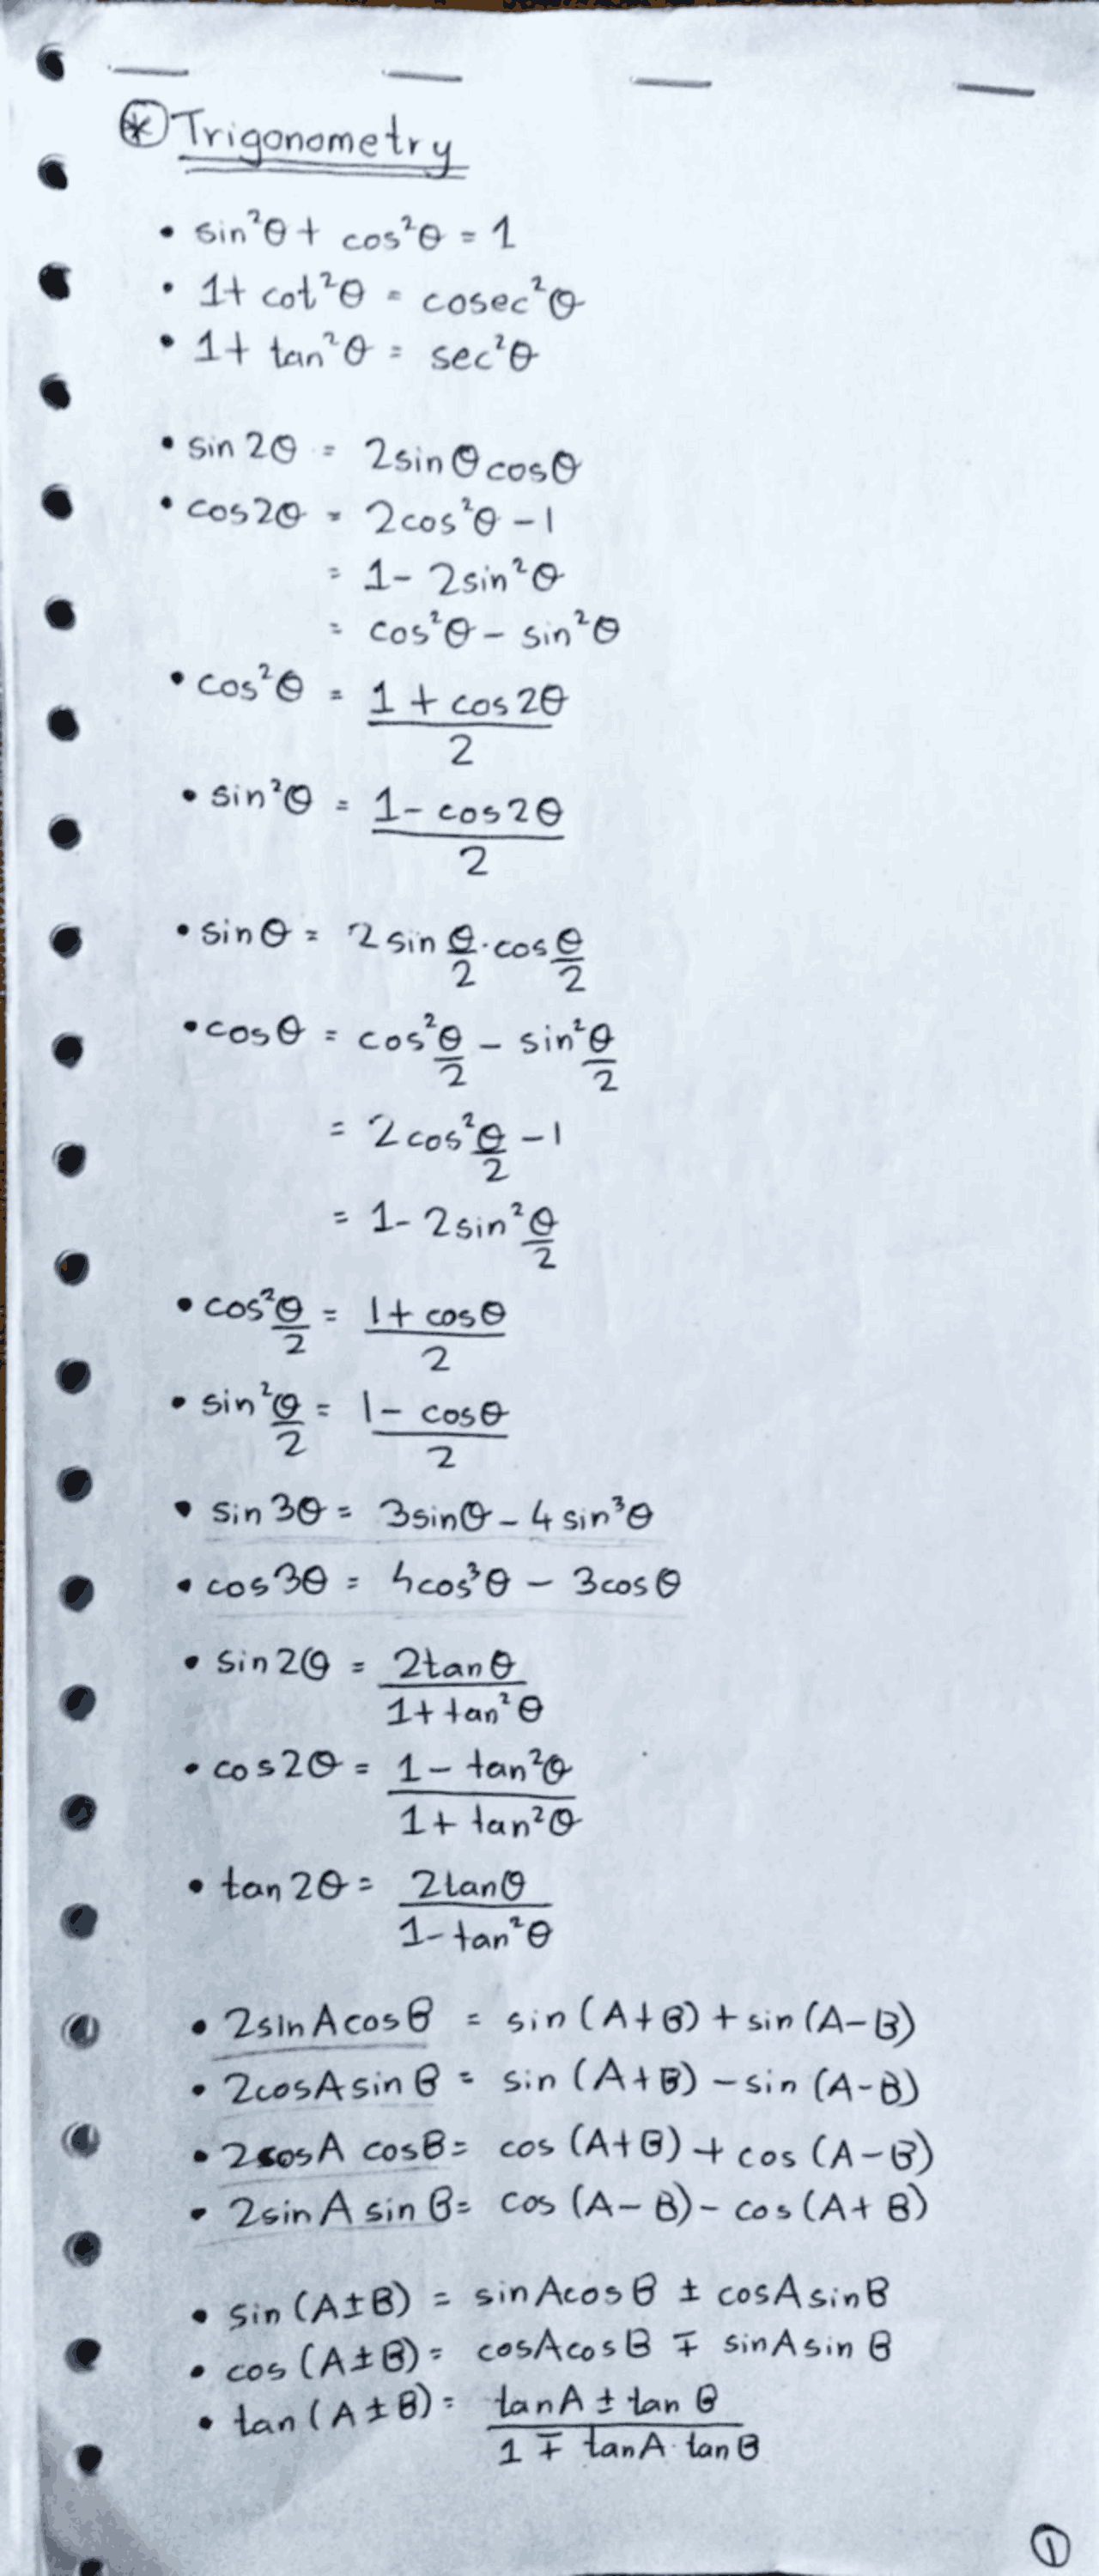 ⊛ Trigonometry
• sin²θ + cos²θ = 1
• 1 + cot²θ = cosec²θ
• 1 + tan²θ = sec²θ
• sin 2θ = 2 sin θ cos θ
• cos 2θ = 2cos²θ - 1
= 1 - 2sin²θ
= cos²θ - sin²θ
• cos²θ = 1 + cos 2θ
2
• sin²θ = 1 - cos 2θ
2
• sin θ = 2 sin θ/2 . cos θ/2
• cos θ = cos² θ/2 - sin² θ/2
= 2 cos² θ/2 - 1
= 1 - 2 sin² θ/2
• cos² θ/2 = 1 + cos θ
2
• sin² θ/2 = 1 - cos θ
2
• sin 3θ = 3 sin θ - 4 sin³θ
• cos 3θ = 4cos³θ - 3 cos θ
• sin 2θ = 2tan θ
1 + tan²θ
• cos 2θ = 1 - tan²θ
1 + tan²θ
• tan 2θ = 2tan θ
1 - tan²θ
• 2sin A cos B = sin (A + B) + sin (A - B)
• 2cos A sin B = sin (A + B) - sin (A - B)
• 2cos A cos B = cos (A + B) + cos (A - B)
• 2sin A sin B = cos (A - B) - cos (A + B)
• sin (A ± B) = sin A cos B ± cos A sin B
• cos (A ± B) = cos A cos B ∓ sin A sin B
• tan (A ± B) = tan A ± tan B
1 ∓ tan A . tan B
①